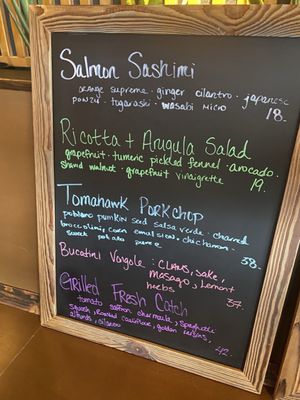 Salmon Sashimi
orange supreme · ginger cilantro · japanese
ponzu · togarashi · wasabi micro
18.
Ricotta + Arugula Salad
grapefruit · turmeric pickled fennel · avocado
shaved walnut · grapefruit vinaigrette
19.
Tomahawk Porkchop
poblano pumpkin seed salsa verde · charred
broccolini, corn emulsion, chicharron -
sweet potato puree
38.
Bucatini Vongole : CLAMS, sake,
masago, Lemon +
herbs
37.
Grilled Fresh Catch
tomato saffron chermoula, spaghetti
squash, Roasted cauliflower, golden raisins,
almonds, cilantro
42.